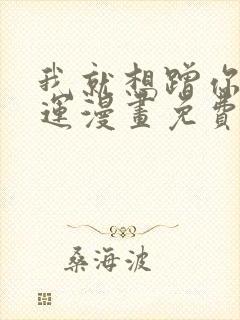 我就想蹭你
運漫畫免費
桑海波